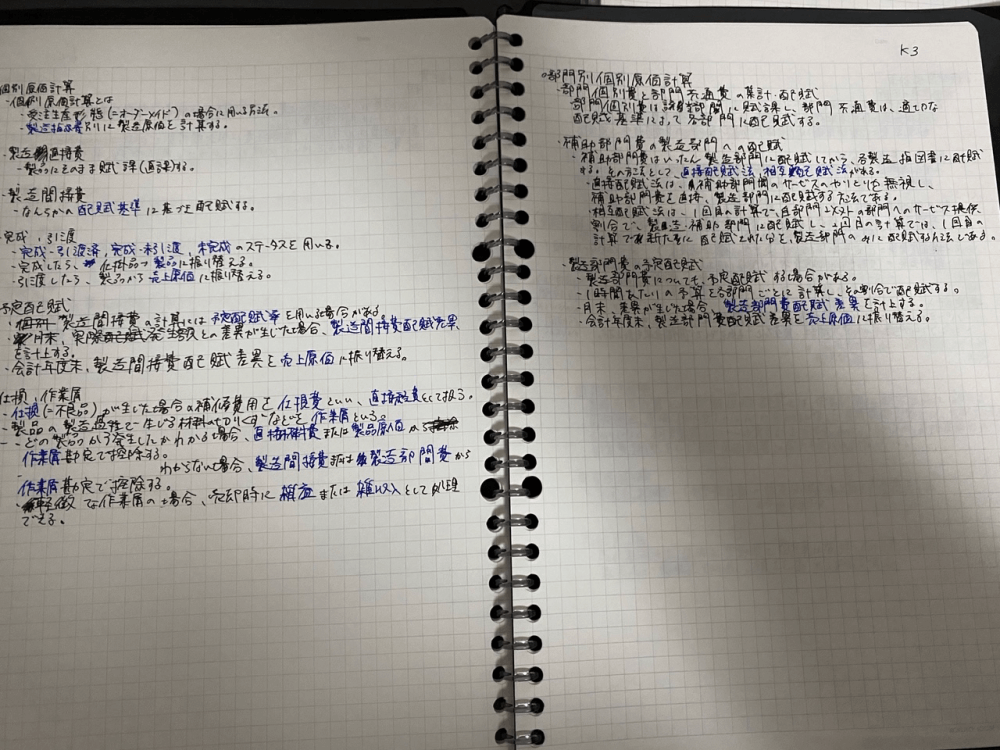 個別原価計算
・個別原価計算とは
・受注生産形態(=オーダーメイド)の場合に用いる方法。
・製造指図書別に製造原価を計算する。
・製造直接費
・製品にそのまま賦課(直課)する。
・製造間接費
・なんらかの配賦基準に基づき配賦する。
完成、引渡
・完成・引渡済、完成・未引渡、未完成のステータスを用いる。
・完成したら、仕掛品→製品に振り替える。
・引渡したら、製品から売上原価に振り替える。
予定配賦
・製造間接費の計算には予定配賦率を用いる場合がある。
・月末、実際発生額との差異が生じた場合、製造間接費配賦差異
を計上する。
・会計年度末、製造間接費配賦差異を売上原価に振り替える。
仕損、作業屑
・仕損(=不良品)が生じた場合の補修費用を仕損費といい、直接経費として扱う。
・製品の製造過程で生じる材料の切りくずなどを作業屑という。
・どの製品から発生したかわかる場合、直接材料費または製品原価から
作業屑勘定で控除する。
わからない場合、製造間接費または製造部門費から
作業屑勘定で控除する。
・軽微な作業屑の場合、売却時に雑益または雑収入として処理
できる。
K3
○部門別個別原価計算
・部門個別費と部門共通費の集計・配賦
部門個別費は該当部門に賦課し、部門共通費は、適切な
配賦基準によって各部門に配賦する。
・補助部門費の製造部門への配賦
・補助部門費はいったん製造部門に配賦してから、各製造指図書に配賦
する。その方法として、直接配賦法、相互配賦法がある。
・直接配賦法は、補助部門間のサービスのやりとりを無視し、
補助部門費を直接、製造部門に配賦する方法である。
・相互配賦法は、1回目の計算で、自部門以外の部門へのサービス提供
割合で、製造・補助部門に配賦し、2回目の計算では、1回目の
計算で新たに配賦された分を、製造部門のみに配賦する方法である。
・製造部門費の予定配賦
・製造部門費についても、予定配賦する場合がある。
・1時間あたりの予算を各部門ごとに計算し、その割合で配賦する。
・月末、差異が生じた場合、製造部門費配賦差異を計上する。
・会計年度末、製造部門費配賦差異を売上原価に振り替える。